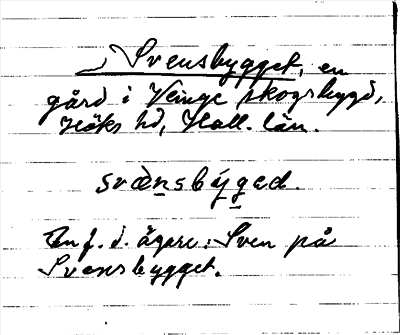 Svensbygget, en
gård i Veinge skogsbygd,
Höks hd, Hall. län.
svænsbýged.
En f. d. ägare: Sven på
Svensbygget.